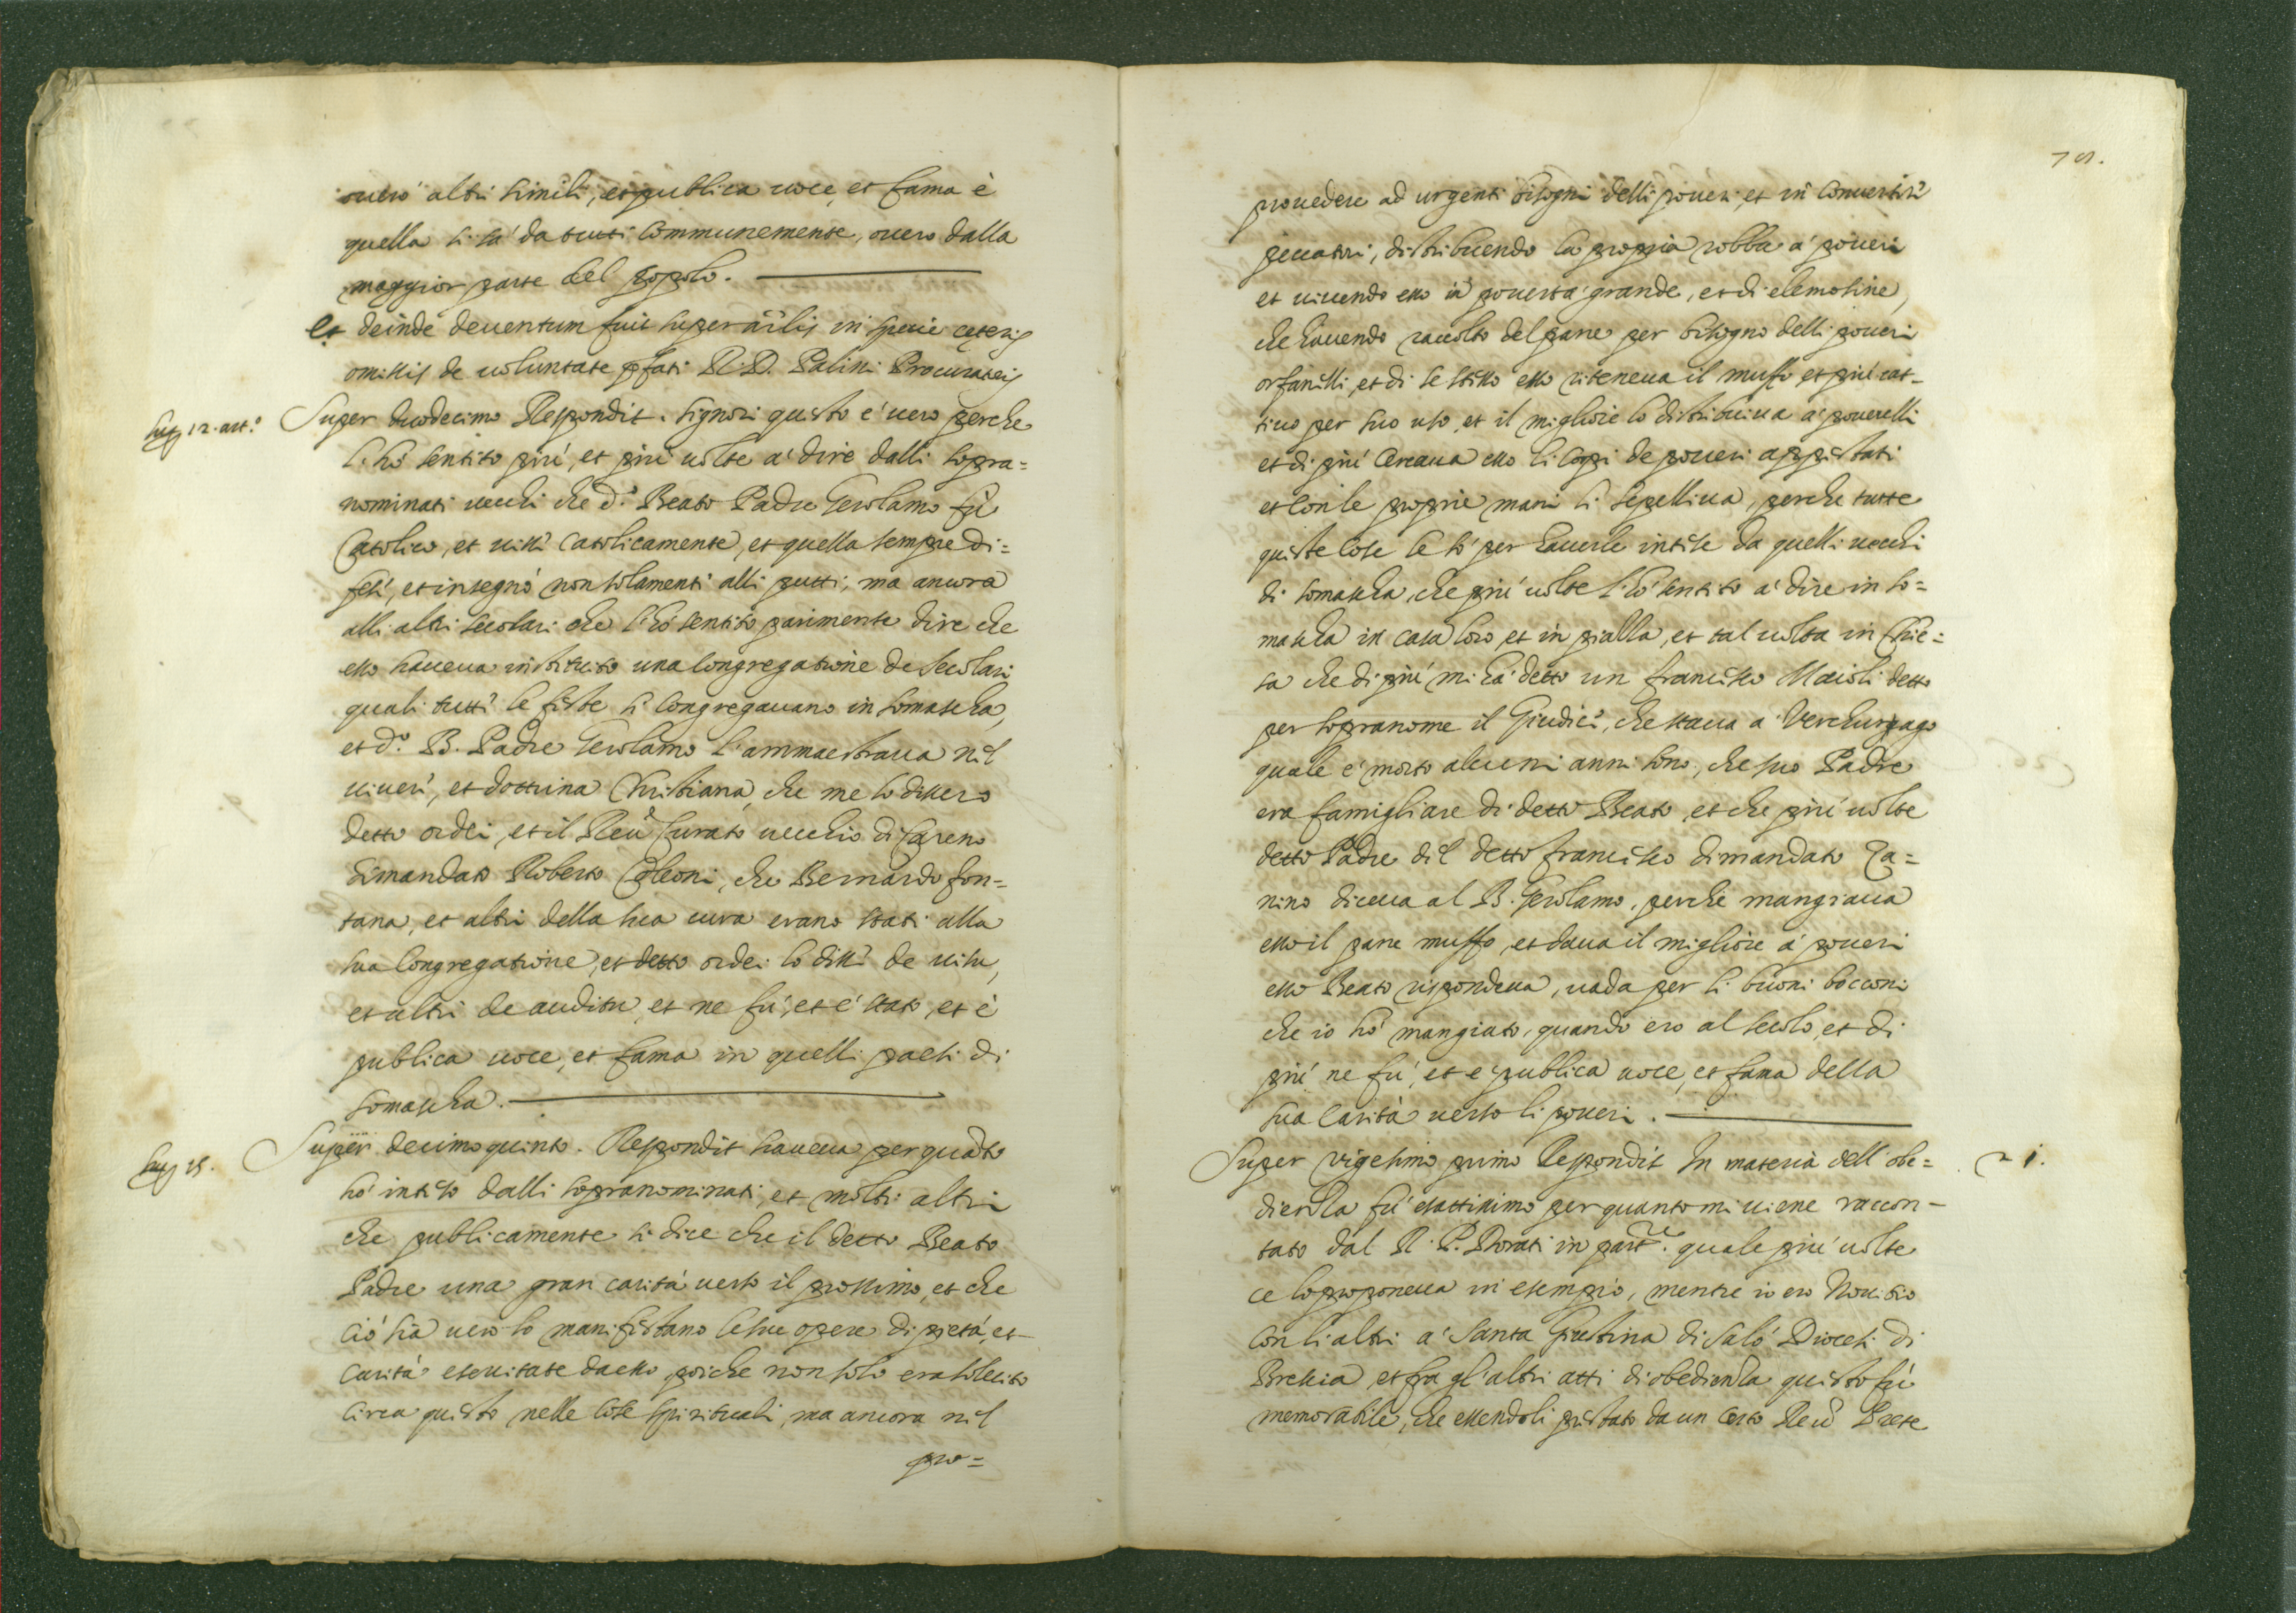 overo altri simili, et publica voce, et fama è
quella si sà da tutti communemente, overo dalla
maggior parte del popolo.
Et deinde deventum fuit super ar̃lis in specie ceteris
omissis de voluntate pfati R. D. Palini Procuratoris
sup 12. art.º
Super duodecimo Respondit. Signori questo e' vero perche
l'hò sentito più, et più volte a' dire dalli sopra=
nominati vecchi che d.º Beato Padre Gerolamo fù
Catolico, et visse catolicamente, et quella sempre di=
fese, et insegnò non solamente alli putti, ma ancora
alli altri secolari che l'hò sentito parimente dire che
esso haveva instituito una congregatione de secolari
quali tutte le feste si congregavano in Somascha,
et d.º B. Padre Gerolamo l'ammaestrava nel
vivere, et dottrina Christiana, che me lo dissero
detto ordei, et il Reũ Curato vecchio di Careno
dimandato Roberto Coleoni, che Bernardo fon=
tana, et altri della sua cura erano stati alla
sua congregatione, et detto ordei lo disse de visu,
et altri de auditu, et ne fù, et e' stato, et è
publica voce, et fama in quelli paesi di
Somascha.
sup 15.
Super decimoquinto. Respondit haveva per quãto
hò inteso dalli sopranominati, et molti altri
che publicamente si dice che il detto Beato
Padre una gran carità verso il prossimo, et che
ciò sia vero lo manifestano le sue opere di pietà, et
carità essercitate da esso, poiche non solo era solecito
circa questo nelle cose spirituali, ma ancora nel
pro=
provedere ad urgenti bisogni delli poveri, et in convertire
peccatori, distribuendo la propria robba a' poveri
et vivendo esso in povertà grande, et di elemosine,
che havendo raccolto del pane per bisogno delli poveri
orfanelli, et di se stesso esso riteneva il muffo et più cat-
tivo per suo uso, et il migliore lo distribuiva a' poverelli
et di più cercava esso li corpi de poveri appestati
et con le proprie mani li sepelliva, perche tutte
queste cose le sò per haverle intese da quelli vecchi
di Somascha, che più volte l'hò sentito a' dire in So=
mascha in casa loro, et in piazza, et tal volta in Chie=
sa che di più mi hà detto un francesco Maioli detto
per sopranome il Giudice, che stava a Verchurago
quale e' morto alcuni anni sono, che suo Padre
era famigliare di detto Beato, et che più volte
detto Padre del detto francesco dimandato Za=
nino diceva al B. Gerolamo, perche mangiava
esso il pane muffo, et dava il migliore a' poveri
esso Beato rispondeva, vada per li buoni bocconi
che io hò mangiato, quando ero al secolo, et di
più ne fù, et e' publica voce, et fama della
sua carità verso li poveri.
21.
Super vigesimo primo Respondit In materia dell'obe=
dienza fù esattissimo per quanto mi viene raccon-
tato dal R. P. Dorati in part.re quale più volte
ce lo proponeva in esempio, mentre io ero Novitio
con li altri a' Santa Giustina di Salò Diocesi di
Brescia, et fra gl'altri atti di obedienza questo fù
memorabile, che essendoli prestato da un certo Reũ Prete